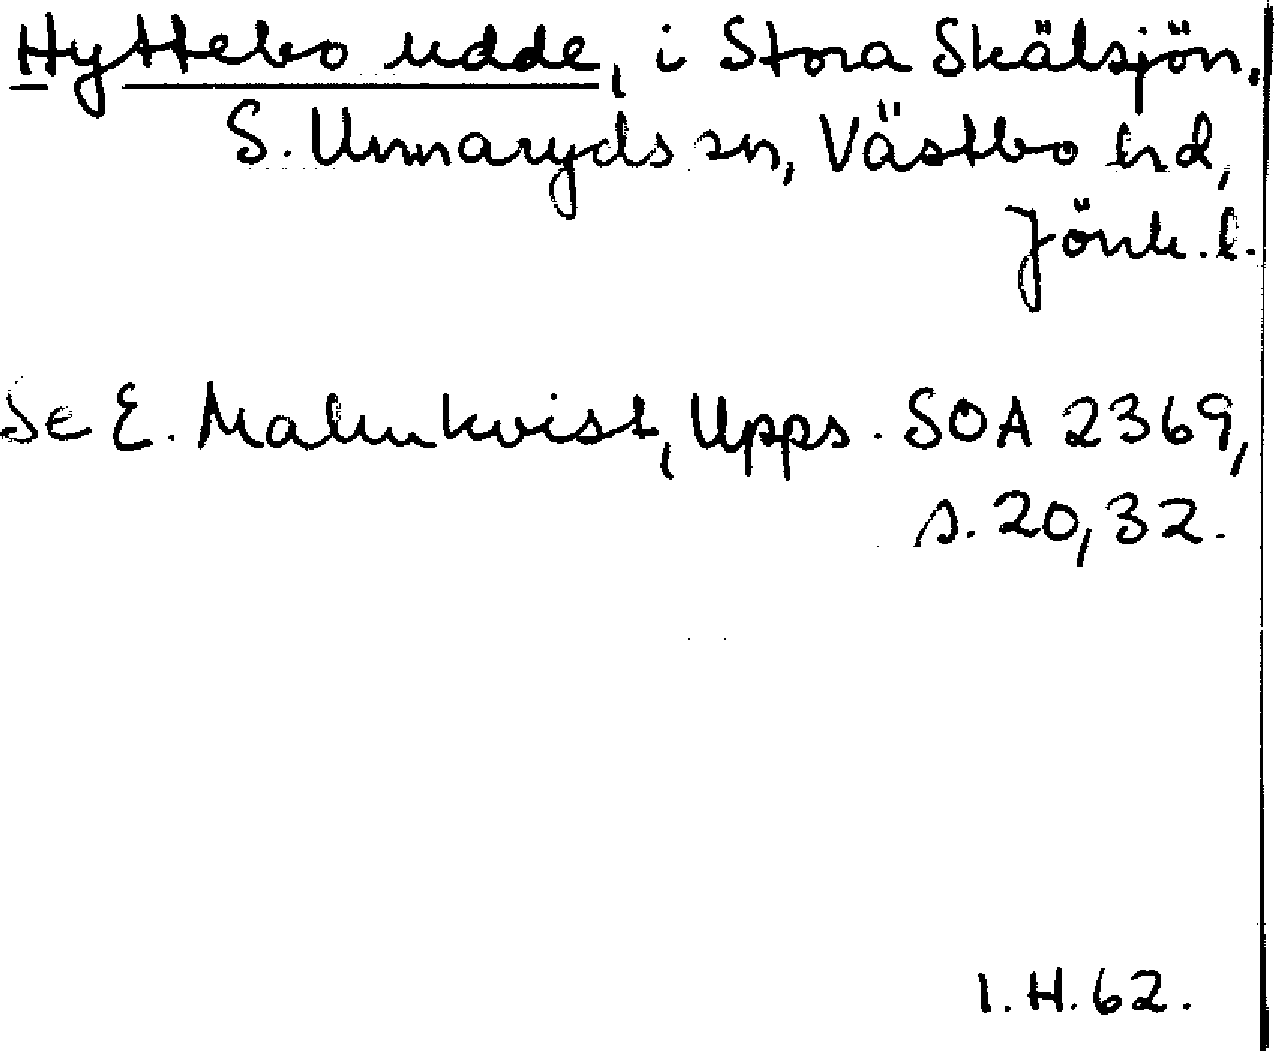 Hyttebo udde, i Stora Skälsjön,
S. Unnaryds sn, Västbo hd,
Jönk. l.
Se E. Malmkvist, Upps. SOA 2369,
s. 20, 32.
I. H. 62.